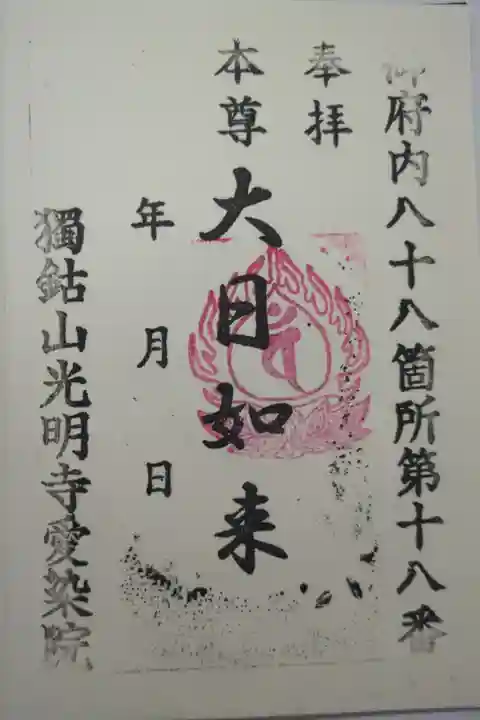 御府内八十八箇所第十八番
奉拝
本尊 大日如来
年 月 日
獨鈷山光明寺愛染院